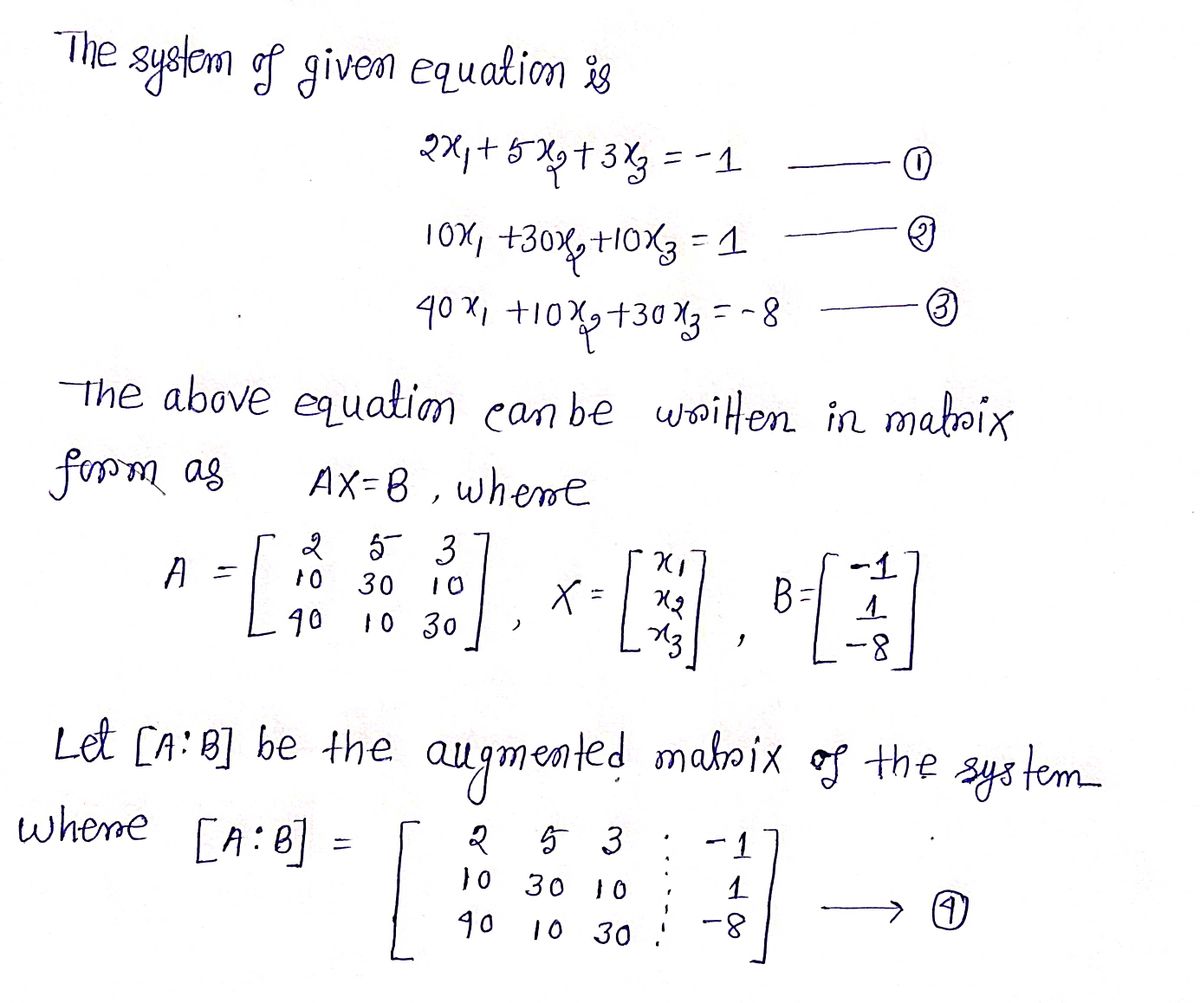 The system of given equation is
2x₁ + 5x₂ + 3x₃ = -1 —— ①
10x₁ + 30x₂ + 10x₃ = 1 —— ②
40x₁ + 10x₂ + 30x₃ = -8 —— ③
The above equation can be written in matrix
form as AX=B , where
A = [ 2 5 3 ; 10 30 10 ; 40 10 30 ] , X = [ x₁ ; x₂ ; x₃ ] , B = [ -1 ; 1 ; -8 ]
Let [A:B] be the augmented matrix of the system
where [A:B] = [ 2 5 3 : -1 ; 10 30 10 : 1 ; 40 10 30 : -8 ] → ④